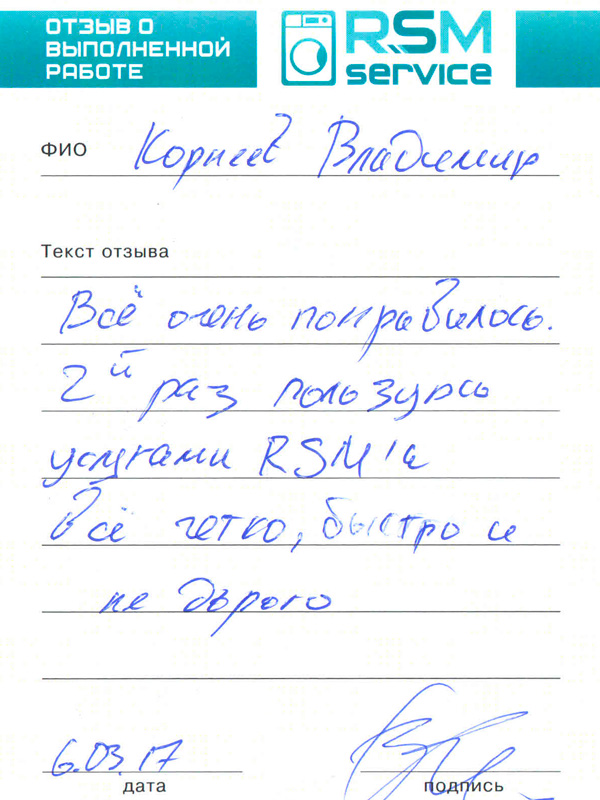 ОТЗЫВ О
ВЫПОЛНЕННОЙ
РАБОТЕ
RSM
service
ФИО Корнеев Владимир
Текст отзыва
Всё очень понравилось.
2й раз пользуюсь
услугами RSM'а
Всё четко, быстро и
не дорого
6.03.17
дата
подпись